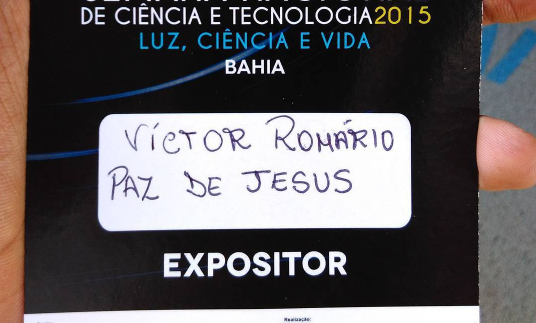 DE CIÊNCIA E TECNOLOGIA2015
LUZ, CIÊNCIA E VIDA
BAHIA
VÍCTOR ROMÁRIO
PAZ DE JESUS
EXPOSITOR
Realização: